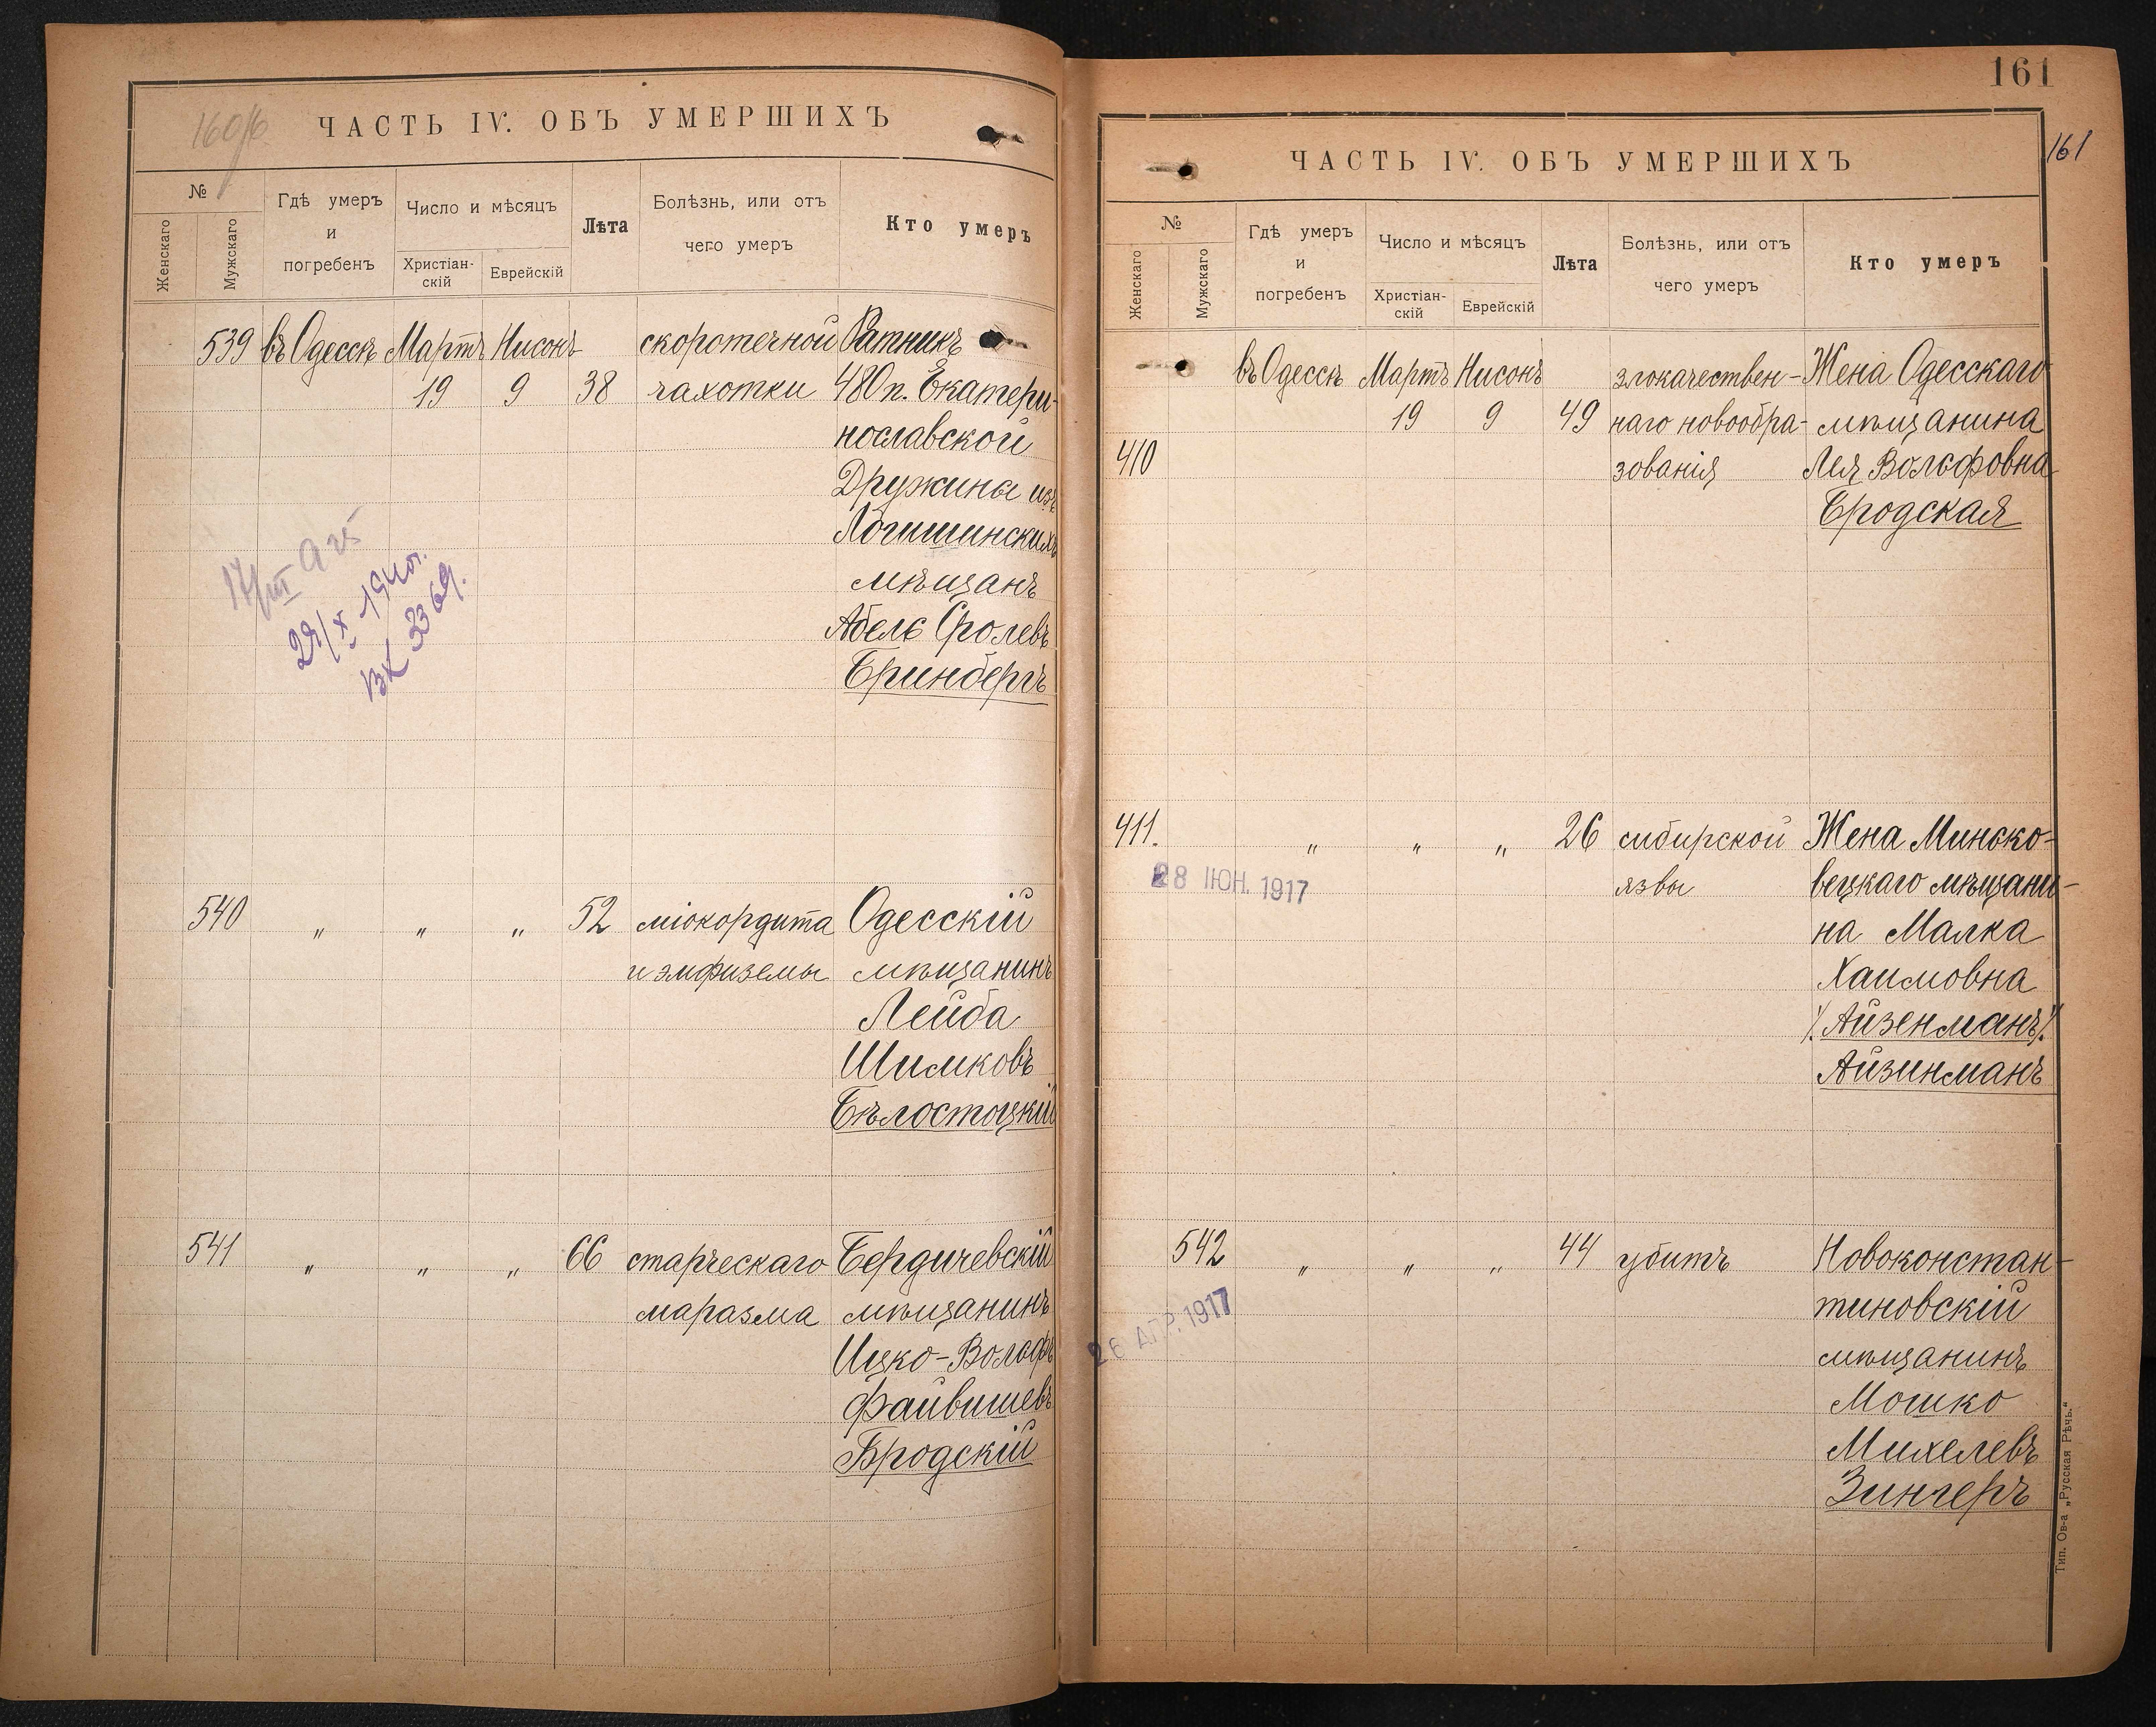 160/б.
ЧАСТЬ IV. ОБЪ УМЕРШИХЪ
№
Женскаго
Мужскаго
Гдѣ умеръ
и
погребенъ
Число и мѣсяцъ
Христіан-
скій
Еврейскій
Лѣта
Болѣзнь, или отъ
чего умеръ
Кто умеръ
539 въ Одессѣ Мартъ Нисонъ скоротечной Ратникъ
19 9 38 чахотки 480 п. Екатери-
нославской
Дружины изъ
Логишинскихъ
мѣщанъ
Абель Сролевъ
Гринбергъ
29/X-1940г.
вх 3369.
540 " " " 52 міокордита Одесскій
и эмфиземы мѣщанинъ
Лейба
Шимковъ
Бѣлостоцкій
541 " " " 66 старческаго Бердичевскій
маразма мѣщанинъ
Ицко-Вольфъ
Файвишевъ
Бродскій
161
161
ЧАСТЬ IV. ОБЪ УМЕРШИХЪ
№
Женскаго
Мужскаго
Гдѣ умеръ
и
погребенъ
Число и мѣсяцъ
Христіан-
скій
Еврейскій
Лѣта
Болѣзнь, или отъ
чего умеръ
Кто умеръ
въ Одессѣ Мартъ Нисонъ злокачествен- Жена Одесскаго
19 9 49 наго новообра- мѣщанина
410 зованія Лея Вольфовна
Бродская
411. " " " 26 сибирской Жена Минско-
28 ІЮН. 1917 язвы вецкаго мѣщани-
на Малка
Хаимовна
/. Айзенманъ /.
Айзинманъ
542 " " " 44 убитъ Новоконстан-
26 АПР. 1917 тиновскій
мѣщанинъ
Мошко
Михелевъ
Зингеръ
Тип. Ов-а „Русская Рѣчь."